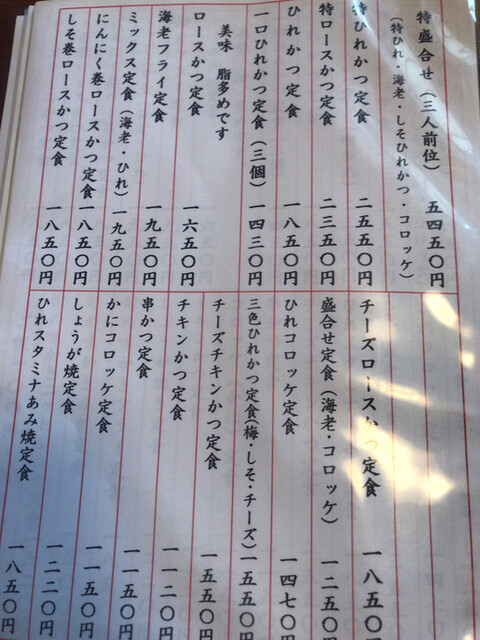 特盛合せ(三人前位) 五四五〇円
(特ひれ・海老・しそひれかつ・コロッケ)
特ひれかつ定食 二五五〇円
特ロースかつ定食 二三五〇円
ひれかつ定食 一八五〇円
一口ひれかつ定食(三個) 一四三〇円
美味 脂多めです
ロースかつ定食 一六五〇円
海老フライ定食 一九五〇円
ミックス定食(海老・ひれ) 一九五〇円
にんにく巻ロースかつ定食 一八五〇円
しそ巻ロースかつ定食 一八五〇円
チーズロースかつ定食 一八五〇
盛合せ定食(海老・コロッケ) 一二五〇円
ひれコロッケ定食 一四七〇円
三色ひれかつ定食(梅・しそ・チーズ) 一五五〇円
チーズチキンかつ定食 一五五〇円
チキンかつ定食 一一二〇円
串かつ定食 一一五〇円
かにコロッケ定食 一一五〇円
しょうが焼定食 一二二〇円
ひれスタミナあみ焼定食 一八五〇円